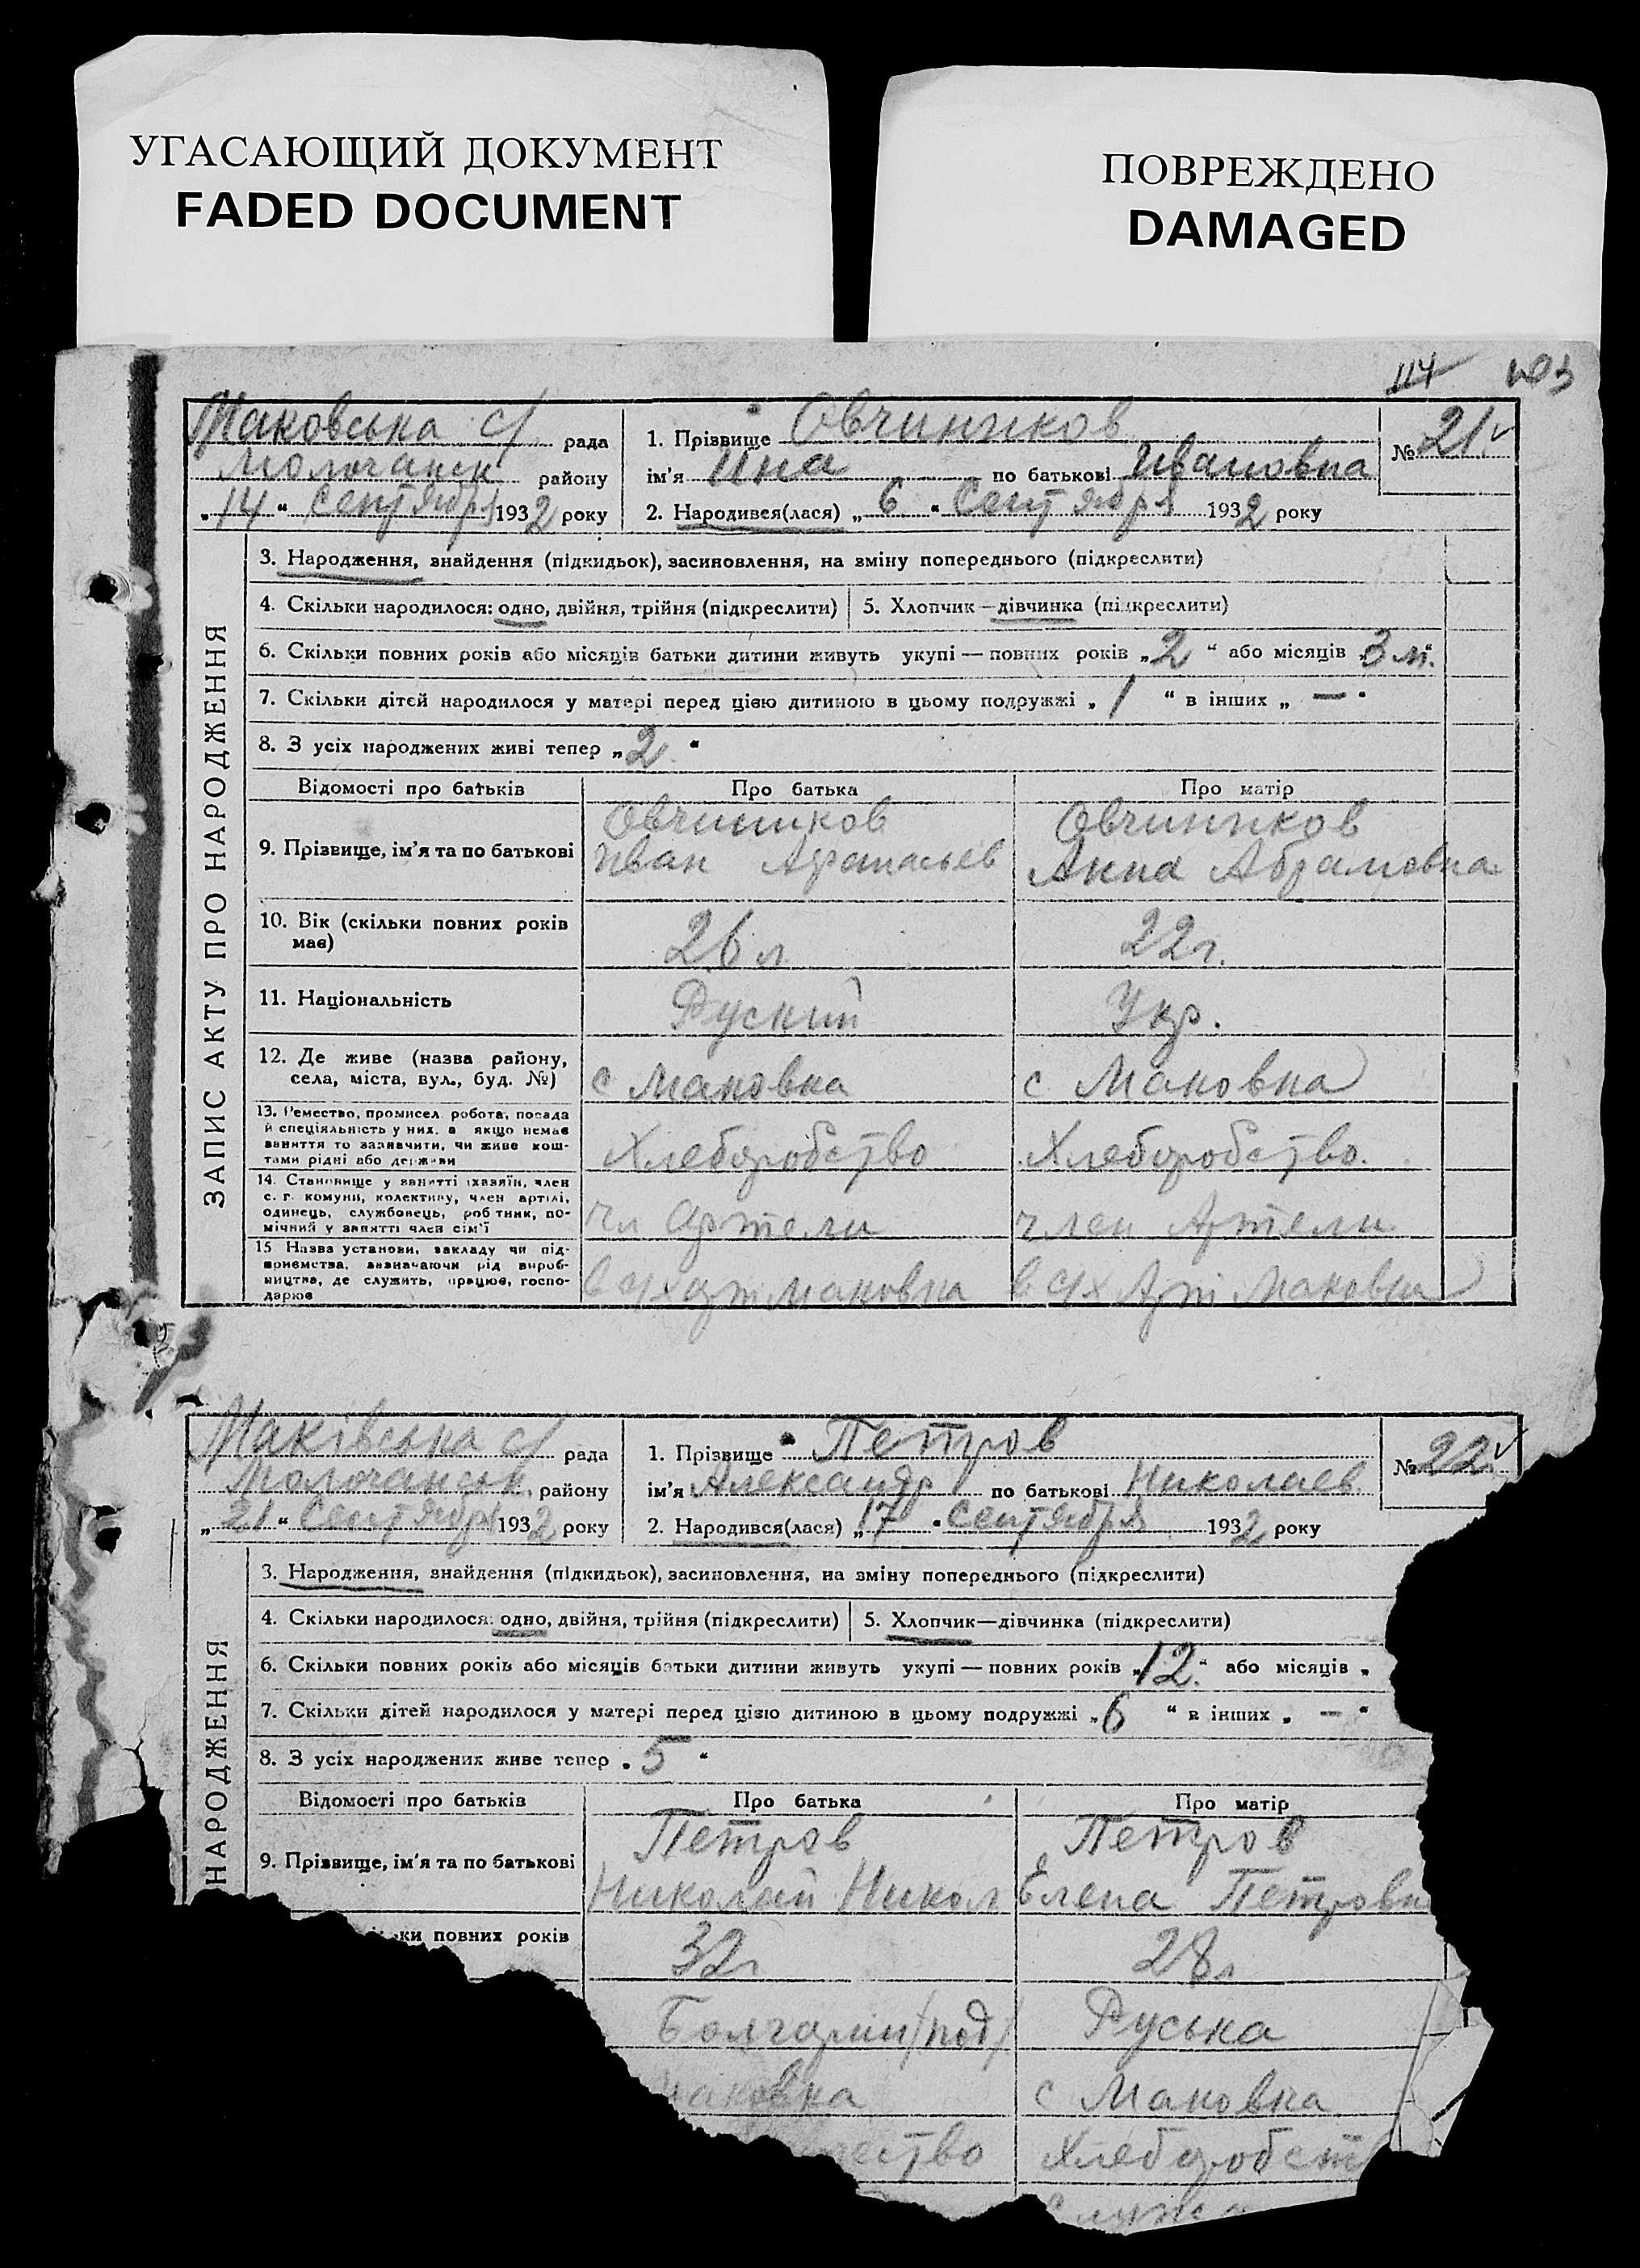 УГАСАЮЩИЙ ДОКУМЕНТ
FADED DOCUMENT
ПОВРЕЖДЕНО
DAMAGED
114
Маковська с/ рада
Молочанськ району
„14“ Сентября 1932 року
1. Прізвище Овчинников
ім'я Ина по батькові Ивановна
2. Народився(лася) „6“ Сентября 1932 року
№ 21
ЗАПИС АКТУ ПРО НАРОДЖЕННЯ
3. Народження, знайдення (підкидьок), засиновлення, на зміну попереднього (підкреслити)
4. Скільки народилося: одно, двійня, трійня (підкреслити)
5. Хлопчик—дівчинка (підкреслити)
6. Скільки повних років або місяців батьки дитини живуть укупі — повних років „2“ або місяців „3 м.“
7. Скільки дітей народилося у матері перед цією дитиною в цьому подружжі „1“ в інших „—“
8. З усіх народжених живі тепер „2“
Відомості про батьків
Про батька
Про матір
9. Прізвище, ім'я та по батькові
Овчиников
Иван Афанасьев
Овчинников
Анна Абрамовна
10. Вік (скільки повних років
має)
26 л
22 г.
11. Національність
Руский
Укр.
12. Де живе (назва району,
села, міста, вул., буд. №)
с Маковка
с Маковка
13. Ремество, промисел, робота, посада
й спеціяльність у них, а якщо немає
заняття то зазначити, чи живе кош-
тами рідні або держави
Хлеборобство
Хлеборобство.
14. Становище у занятті (хазяїн, член
с. г. комуни, колективу, член артілі,
одинець, службовець, робітник, по-
мічний у занятті член сім'ї
Чл Артели
член Артели
15 Назва установи, закладу чи під-
приємства, зазначаючи рід вироб-
ництва, де служить, працює, госпо-
дарює
в с/х арт Маковка
в с/х Арт Маковка
Маківська с/ рада
Молочанськ. району
„21“ Сентября 1932 року
1. Прізвище Петров
ім'я Александр по батькові Николаев
2. Народився(лася) „17“ Сентября 1932 року
№ 22
НАРОДЖЕННЯ
3. Народження, знайдення (підкидьок), засиновлення, на зміну попереднього (підкреслити)
4. Скільки народилося: одно, двійня, трійня (підкреслити)
5. Хлопчик—дівчинка (підкреслити)
6. Скільки повних років або місяців батьки дитини живуть укупі — повних років „12.“ або місяців „
7. Скільки дітей народилося у матері перед цією дитиною в цьому подружжі „6“ в інших „—“
8. З усіх народжених живе тепер „5“
Відомості про батьків
Про батька
Про матір
9. Прізвище, ім'я та по батькові
Петров
Николай Никол
Петров
Елена Петровн
ки повних років
32 г
28 л
Болгарин/под/
Руська
Маковка
с Маковка
чество
Хлеборобст